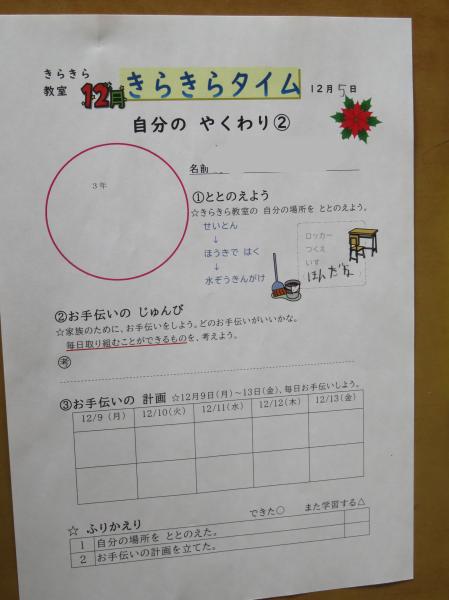 きらきら
教室
12月
きらきらタイム
12月5日
自分の やくわり②
3年
名前
①ととのえよう
☆きらきら教室の 自分の場所を ととのえよう。
せいとん
↓
ほうきで はく
↓
水ぞうきんがけ
ロッカー
つくえ
いす
(ほんだな)
②お手伝いの じゅんび
☆家族のために、お手伝いをしよう。どのお手伝いがいいかな。
毎日取り組むことができるものを、考えよう。
考
③お手伝いの 計画 ☆12月9日(月)~13日(金)、毎日お手伝いしよう。
12/9 (月) 12/10(火) 12/11(水) 12/12(木) 12/13(金)
☆ ふりかえり できた○ また学習する△
1 自分の場所を ととのえた。
2 お手伝いの計画を立てた。